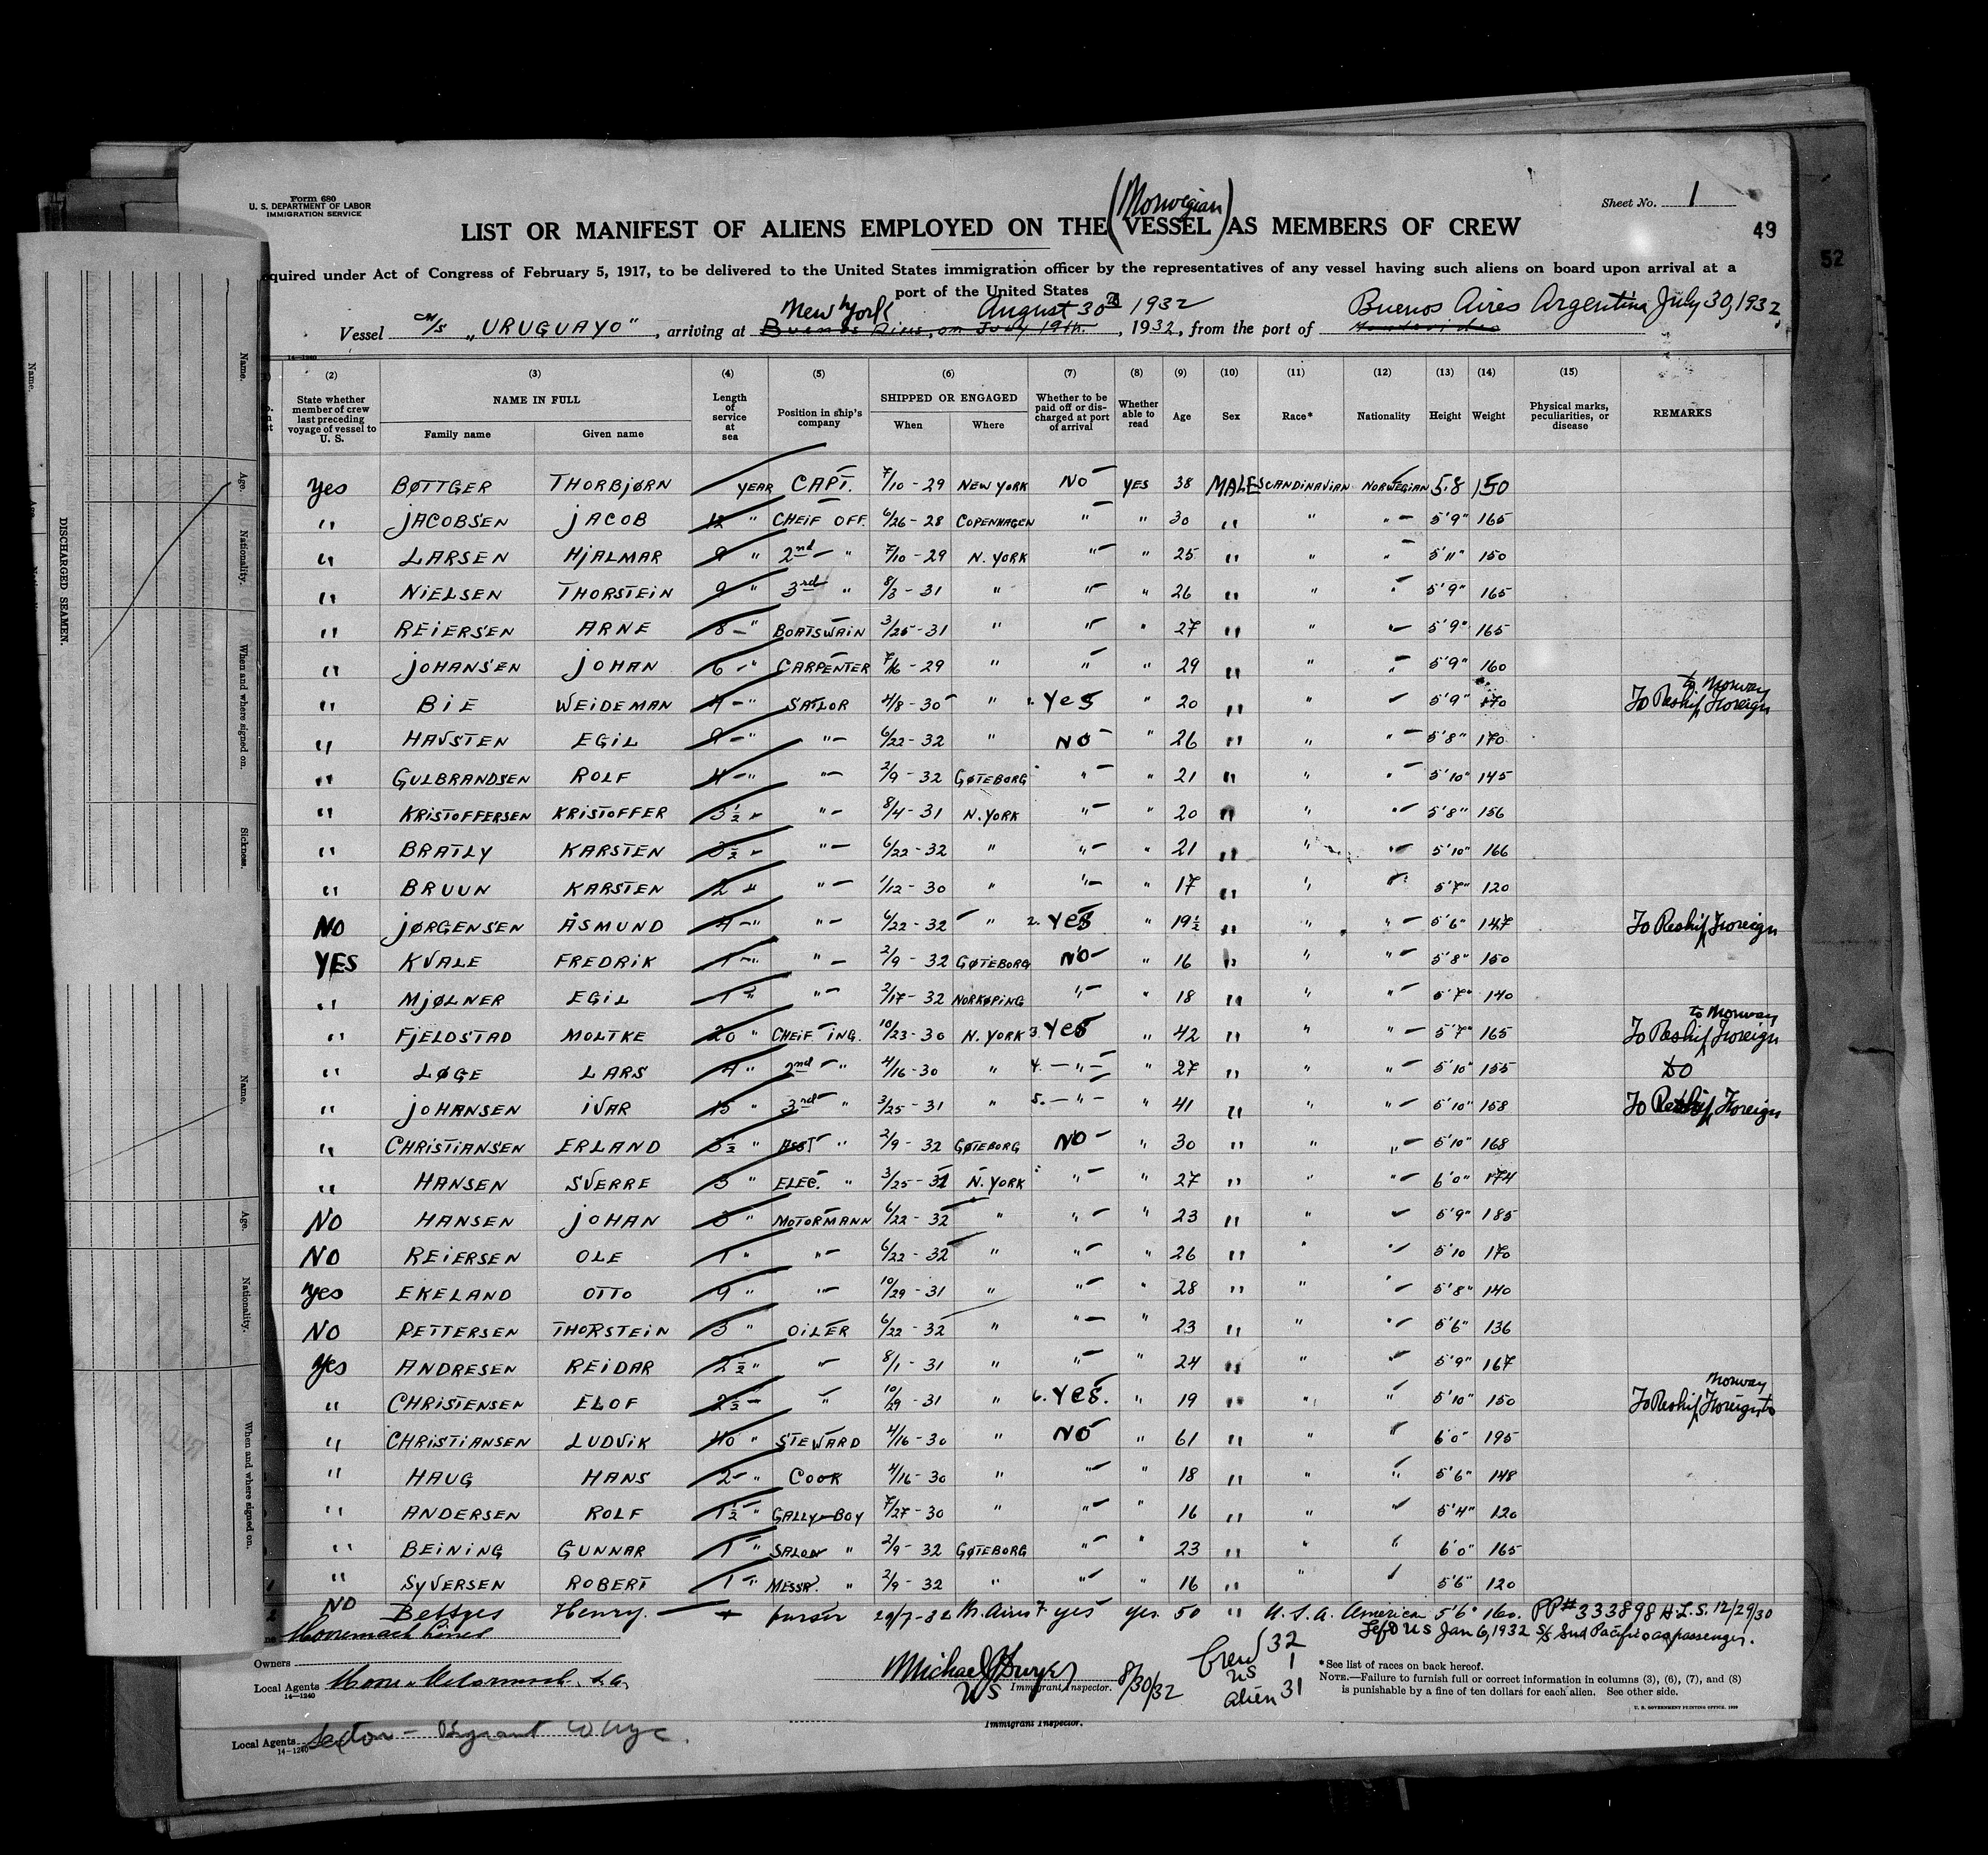 Form 680
U. S. DEPARTMENT OF LABOR
IMMIGRATION SERVICE
Sheet No. 1
49
52
(Norwegian)
LIST OR MANIFEST OF ALIENS EMPLOYED ON THE VESSEL AS MEMBERS OF CREW
quired under Act of Congress of February 5, 1917, to be delivered to the United States immigration officer by the representatives of any vessel having such aliens on board upon arrival at a
port of the United States
New York August 30 1932 Buenos Aires Argentina July 30, 1932
Vessel M/S "URUGUAYO", arriving at Buenos Aires, on July 19th, 1932, from the port of Montevideo
14—1240
(2) (3) (4) (5) (6) (7) (8) (9) (10) (11) (12) (13) (14) (15)
State whether member of crew last preceding voyage of vessel to U. S. NAME IN FULL Family name Given name Length of service at sea Position in ship's company SHIPPED OR ENGAGED When Where Whether to be paid off or discharged at port of arrival Whether able to read Age Sex Race* Nationality Height Weight Physical marks, peculiarities, or disease REMARKS
Yes BØTTGER THORBJØRN YEAR CAPT. 7/10-29 NEW YORK NO YES 38 MALE SCANDINAVIAN NORWEGIAN 5.8 150
" JACOBSEN JACOB 12 " CHEIF OFF. 6/26-28 COPENHAGEN " " 30 " " " 5'9" 165
" LARSEN HJALMAR 9 " 2nd " 7/10-29 N. YORK " " 25 " " " 5'11" 150
" NIELSEN THORSTEIN 9 " 3rd " 8/3-31 " " " 26 " " " 5'9" 165
" REIERSEN ARNE 8 - " BOATSWAIN 3/25-31 " " " 27 " " " 5'9" 165
" JOHANSEN JOHAN 6 - " CARPENTER 7/16-29 " " " 29 " " " 5'9" 160
" BIE WEIDEMAN 4 - " SAILOR 4/8-30 " 1. Yes " 20 " " " 5'9" 170 To Reship Foreign to Norway
" HAVSTEN EGIL 9 - " " 6/22-32 " NO " 26 " " " 5'8" 170
" GULBRANDSEN ROLF 4 - " " 2/9-32 GØTEBORG " " 21 " " " 5'10" 145
" KRISTOFFERSEN KRISTOFFER 3½ " " 8/4-31 N. YORK " " 20 " " " 5'8" 156
" BRATLY KARSTEN 3½ " " 6/22-32 " " " 21 " " " 5'10" 166
" BRUUN KARSTEN 2 " " 1/12-30 " " " 17 " " " 5'7" 120
NO JØRGENSEN ÅSMUND 4 - " " 6/22-32 " 2. Yes " 19½ " " " 5'6" 147 To Reship Foreign
YES KVALE FREDRIK 1 - " " 2/9-32 GØTEBORG NO " 16 " " " 5'8" 150
" MJØLNER EGIL 1 " " 2/17-32 NORKØPING " " 18 " " " 5'7" 140
" FJELDSTAD MOLTKE 20 " CHEIF ING. 10/23-30 N. YORK 3. Yes " 42 " " " 5'7" 165 To Reship Foreign to Norway
" LØGE LARS 4 " 2nd " 4/16-30 " 4. - " - " 27 " " " 5'10" 155 DO
" JOHANSEN IVAR 15 " 3rd " 3/25-31 " 5. - " - " 41 " " " 5'10" 158 To Reship Foreign
" CHRISTIANSEN ERLAND 3½ " ASST " 2/9-32 GØTEBORG NO " 30 " " " 5'10" 168
" HANSEN SVERRE 3 " ELEC. " 3/25-31 N. YORK " " 27 " " " 6'0" 174
NO HANSEN JOHAN 3 " MOTORMANN 6/22-32 " " " 23 " " " 5'9" 185
NO REIERSEN OLE 1 " " 6/22-32 " " " 26 " " " 5'10 170
Yes EKELAND OTTO 9 " " 10/29-31 " " " 28 " " " 5'8" 140
NO PETTERSEN THORSTEIN 3 " OILER 6/22-32 " " " 23 " " " 5'6" 136
Yes ANDRESEN REIDAR 2½ " " 8/1-31 " " " 24 " " " 5'9" 167
" CHRISTENSEN ELOF 2½ - " 10/29-31 " 6. Yes. " 19 " " " 5'10" 150 To Reship Foreign to Norway
" CHRISTIANSEN LUDVIK 40 " STEWARD 4/16-30 " NO " 61 " " " 6'0" 195
" HAUG HANS 2 - " COOK 4/16-30 " " " 18 " " " 5'6" 148
" ANDERSEN ROLF 1½ " GALLY-BOY 7/27-30 " " " 16 " " " 5'4" 120
" BEINING GUNNAR 1 " SALON " 2/9-32 GØTEBORG " " 23 " " " 6'0" 165
" SYVERSEN ROBERT 1 " MESSR. " 2/9-32 " " " 16 " " " 5'6" 120
NO Henry purser 29/7-32 B. Aires 7. yes yes. 50 " U.S.A. America 5'6" 160. PP# 333898 H.L.S. 12/29/30
Left US Jan 6, 1932 S/S Sud Pacifico as passenger.
Mooremack Lines
Owners
Local Agents Moore & McCormack
14—1240
Michael J Dwyer
US Immigrant Inspector. 8/30/32
Crew 32
US 1
alien 31
*See list of races on back hereof.
NOTE.—Failure to furnish full or correct information in columns (3), (6), (7), and (8)
is punishable by a fine of ten dollars for each alien. See other side.
U. S. GOVERNMENT PRINTING OFFICE
Immigrant Inspector.
Local Agents
14—1240
DISCHARGED SEAMEN.
Name.
Age.
Nationality.
When and where signed on.
Sickness.
Name.
Age.
Nationality.
When and where signed on.
Name.